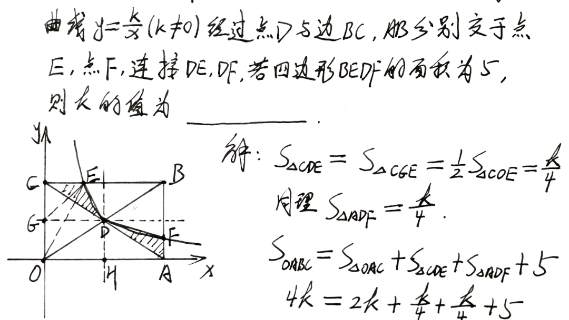 曲线y=k/x(k≠0)经过点D与边BC,AB分别交于点
E,点F,连接DE,DF,若四边形BEDF的面积为5,
则k的值为________.
解: S△CDE = S△CGE = 1/2 S△COE = k/4
同理 S△ADF = k/4.
SOABC = S△OAC + S△CDE + S△ADF + 5
4k = 2k + k/4 + k/4 + 5
y
C E B
G D F
O H A x